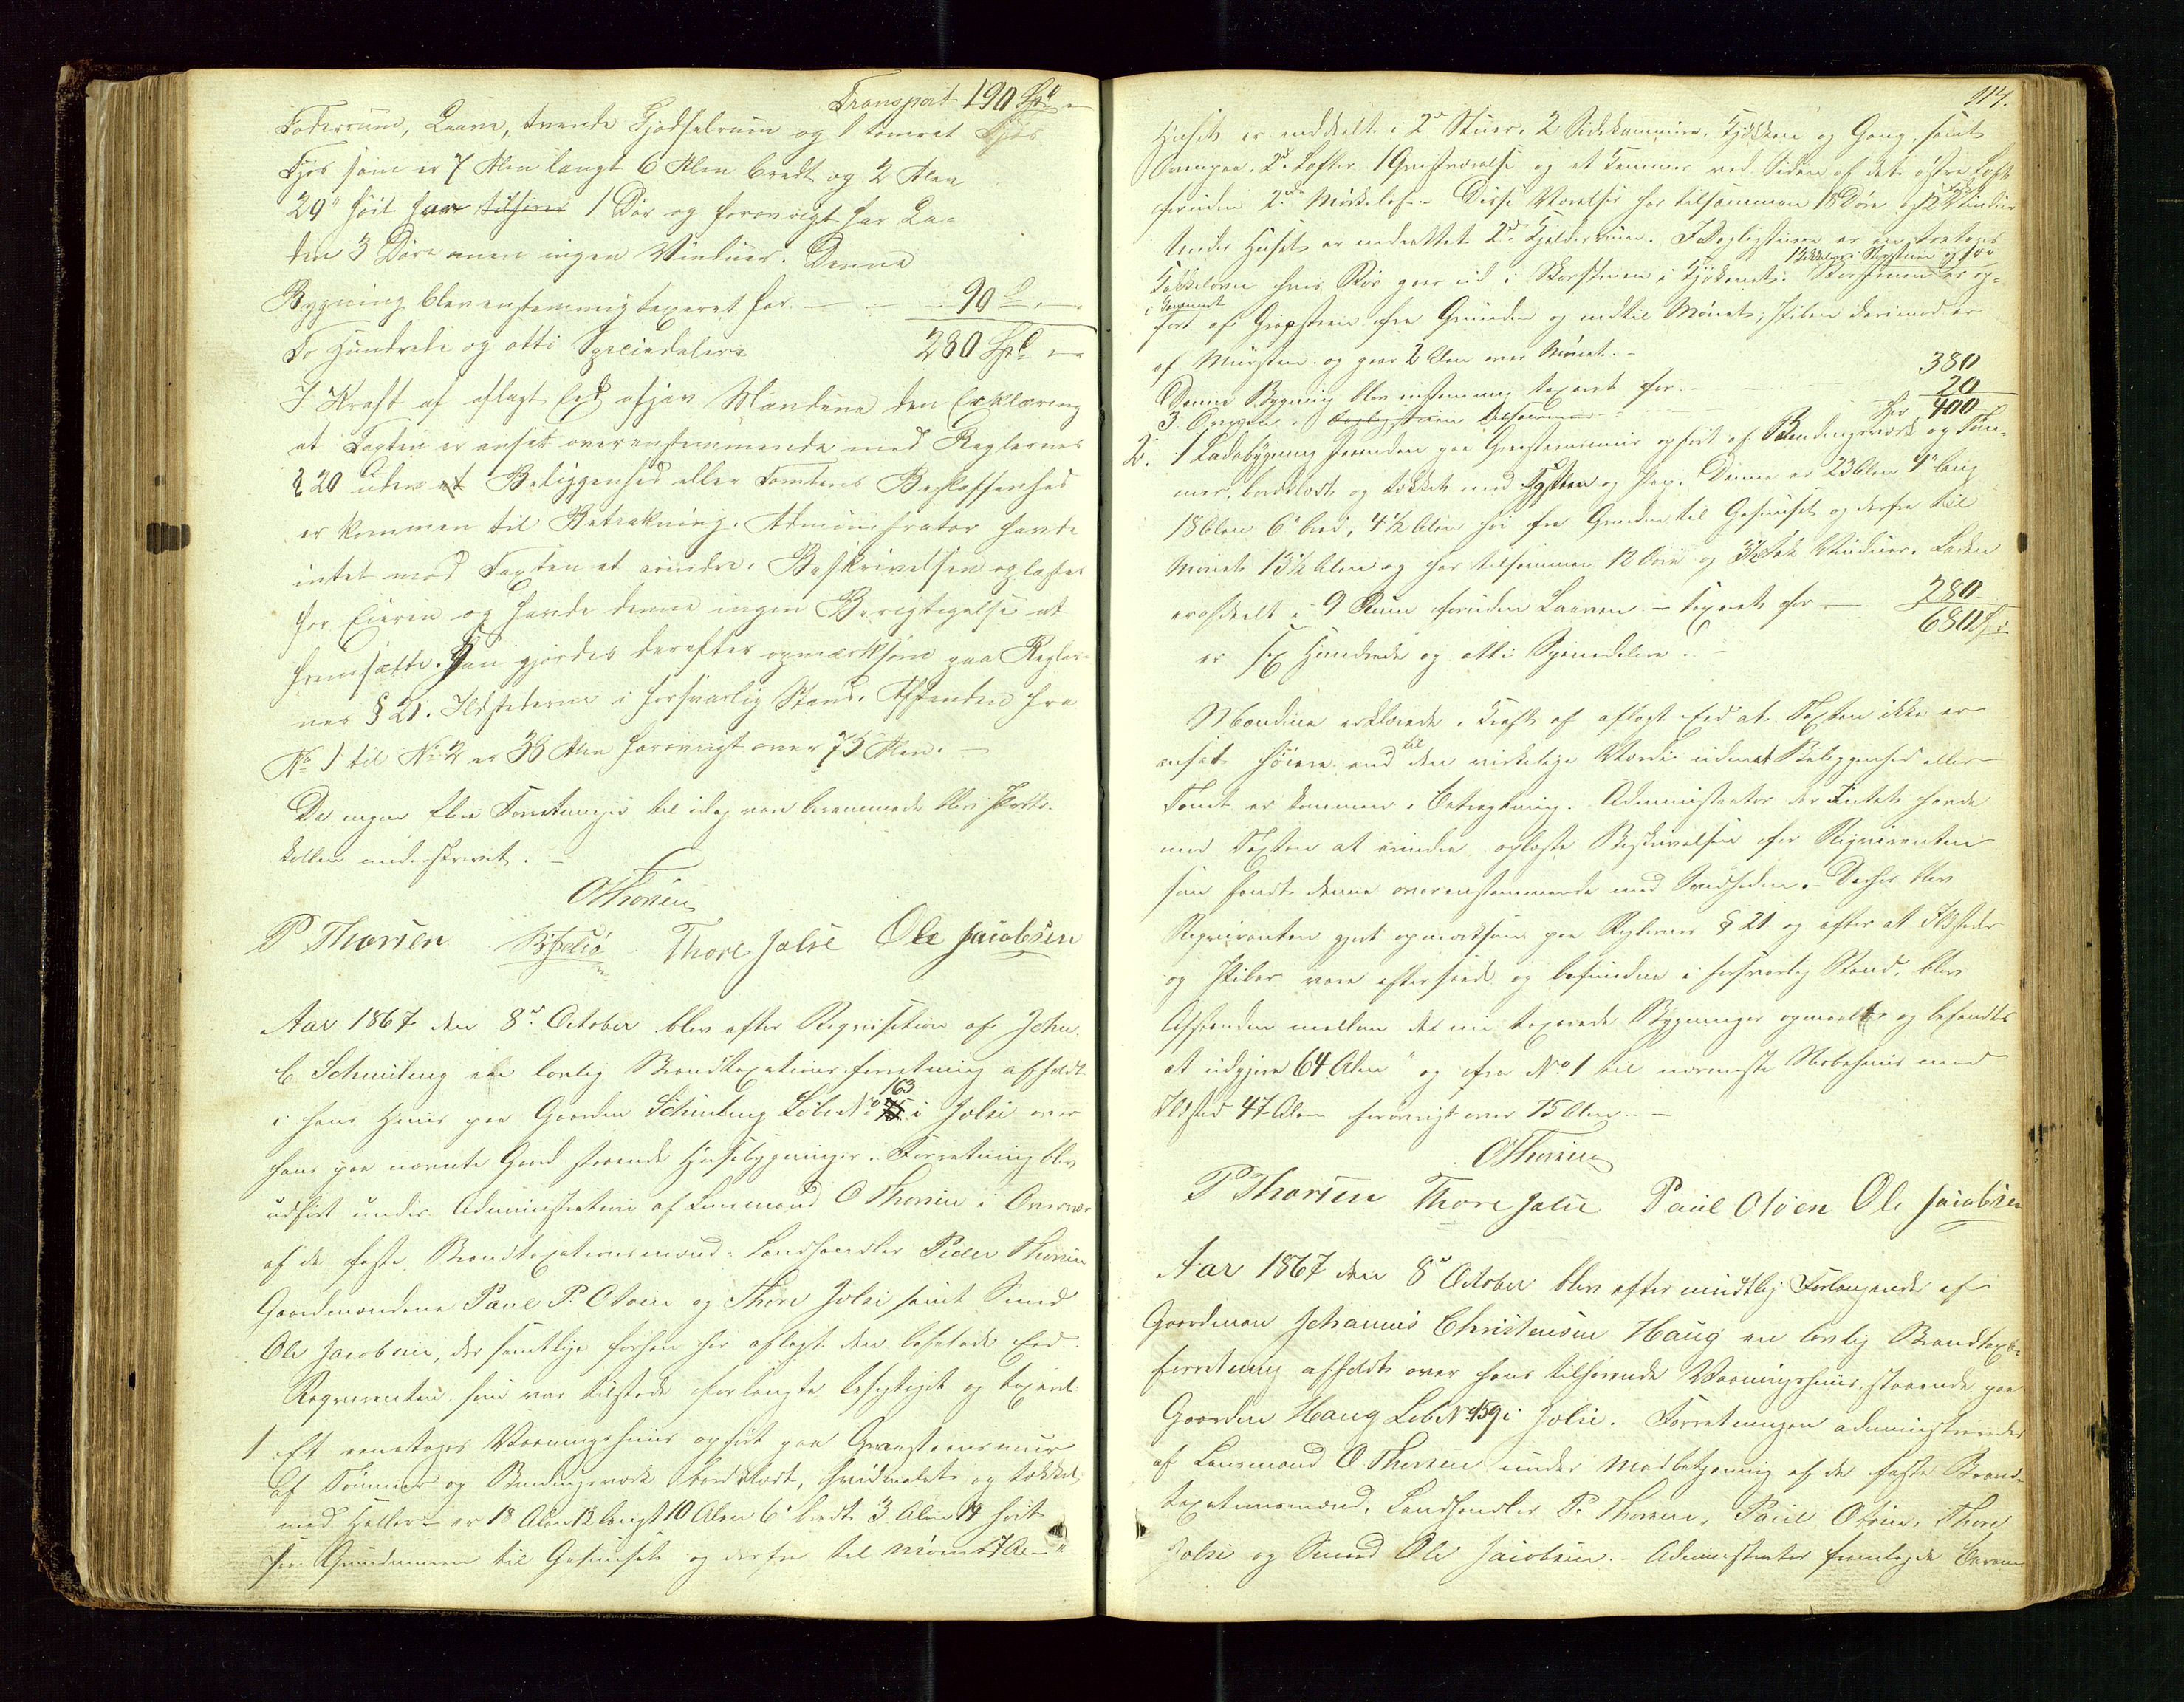 Transport 190 Spd
Foderrum, Laave, tvende Gjødselrum og 1 tømret Fjøs
Fjøs som er 7 Alen langt 6 Alen bredt og 2 Alen
29" høit har tilhører 1 Dør og forøvrigt har La-
den 3 Døre men ingen Vinduer. Denne
Bygning blev enstemmig taxeret for — 90
To Hundrede og otti Speciedalere 280 Spd
I Kraft af aflagt Eed afgav Mændene den Erklæring
at Taxten er ansat overensstemmende med Reglernes
§ 20 uden at Beliggenhed eller Tomtens Beskaffenhed
er kommen til Betrakning. Administrator havde
intet mod Taxten at erindre. Beskrivelsen oplæstes
for Eieren og havde denne ingen Berigtigelse at
fremsætte. Han gjordes derefter opmærksom paa Regler-
nes § 21. Ildstederne i forsvarlig Stand. Afstanden fra
No 1 til No 2 er 36 Alen forøvrigt over 75 Alen. —
Da ingen flere Forretninger til idag var berammede blev Proto-
kollen underskrevet. —
O Thorsen
P Thorsen Thore Jolse Ole Jacobsen
Aar 1867 den 8de October blev efter Requisition af John
C Schmiting en lovlig Brandtaxationsforretning afholdt
i hans Huus paa Gaarden Løbe No 163 i Jolse over
hans paa nævnte Gaard staaende Huusbygninger. Forretning blev
udført under Administration af Lensmand O Thorsen i Overvær
af de faste Brandtaxationsmænd: Landhandler Peder Thorsen
Gaardmændene Paul P. Otøen og Thore Jolse samt Smed
Ole Jacobsen, der samtlige forhen har aflagt den befalede Eed.
Requirenten som var tilstede forlangte besigtiget og taxeret
1 Et eenetages Vaaningshuus opført paa Graasteensmuur
af Tømmer og Bindingsverk bordklædt, hvidmalet og tækket
med Heller — er 18 Alen 12 langt 10 Alen 6" bredt 3 Alen 14 høit
fra Grundmuren til Gesimset og derfra til Mønet 7 Al — "
114.
Huset er inddeelt i 2de Stuer, 2 Sidekammere, Kjøkken og Gang, samt
ovenpaa 2de Lofter 1 Gjesteværelse og et Kammer ved Siden af det østre Loft
foruden 2de Mørkeloft — Disse Værelser har tilsammen 18 Døre og 12 Vinduer
Under Huset er indrettet 2de Kjelderrum. I Dagligstuen er en toetages
Kakkelovn hvis Rør gaar ud i Skorsteenen i Kjøkkenet. Skorstenen er op-
ført af Graasteen fra Grunden og indtil Mønet, Piben derimod er
af Mursteen og gaar 2 Alen over Mønet. —
Denne Bygning blev enstemmig taxeret for — 380
3 Ovnene 20
Spd 400
2. 1 Ladebygning staaende paa Graasteensmuur opført af Bindingsverk og Tøm-
mer, bordklædt og tækket med Tagsteen og Hæ. Denne er 23 Alen 4" lang
18 Alen 6" bred, 4½ Alen høi fra Grunden til Gesimset og derfra til
Mønet 13½ Alen og har tilsammen 12 Døre og Vinduer. Laden
er afdeelt i 9 Rum foruden Laaven — taxeret for — 280
680
er sex Hundrede og otti Speciedalere. —
Mændene erklærede i Kraft af aflagt Eed at Taxten ikke er
ansat høiere end til den virkelige Værdi uden at Beliggenhed eller
Tomt er kommen i Betragtning. Administrator der Intet havde
mod Taxten at erindre oplæste Beskrivelsen for Requirenten
som fandt denne overensstemmende med Sandheden. — Derpaa blev
Requirenten gjort opmærksom paa Reglernes § 21 og efter at Ildsteder
og Piber vare efterseede og befundne i forsvarlig Stand, blev
Afstanden mellem de nu taxerede Bygninger opmaalt og befandtes
at udgjøre 64 Alen " og fra No 1 til nærmeste Nabohuus med
Ildsted 47 Alen forøvrigt over 75 Alen. —
O Thorsen
P Thorsen Thore Jolse Paul Otøen Ole Jacobsen
Aar 1867 den 8de October blev efter mundtlig Forlangende af
Gaardman Johannes Christensen Haug en lovlig Brandtaxt-
forretning afholdt over hans tilhørende Vaaningshuus, staaende paa
Gaarden Haug Løb No 159 i Jolse. Forretningen administreredes
af Lensmand O Thorsen under Medbetjening af de faste Brand-
taxationsmænd, Landhandler P. Thorsen, Paul Otøen, Thore
Jolse og Smed Ole Jacobsen. — Administrator fremlagde